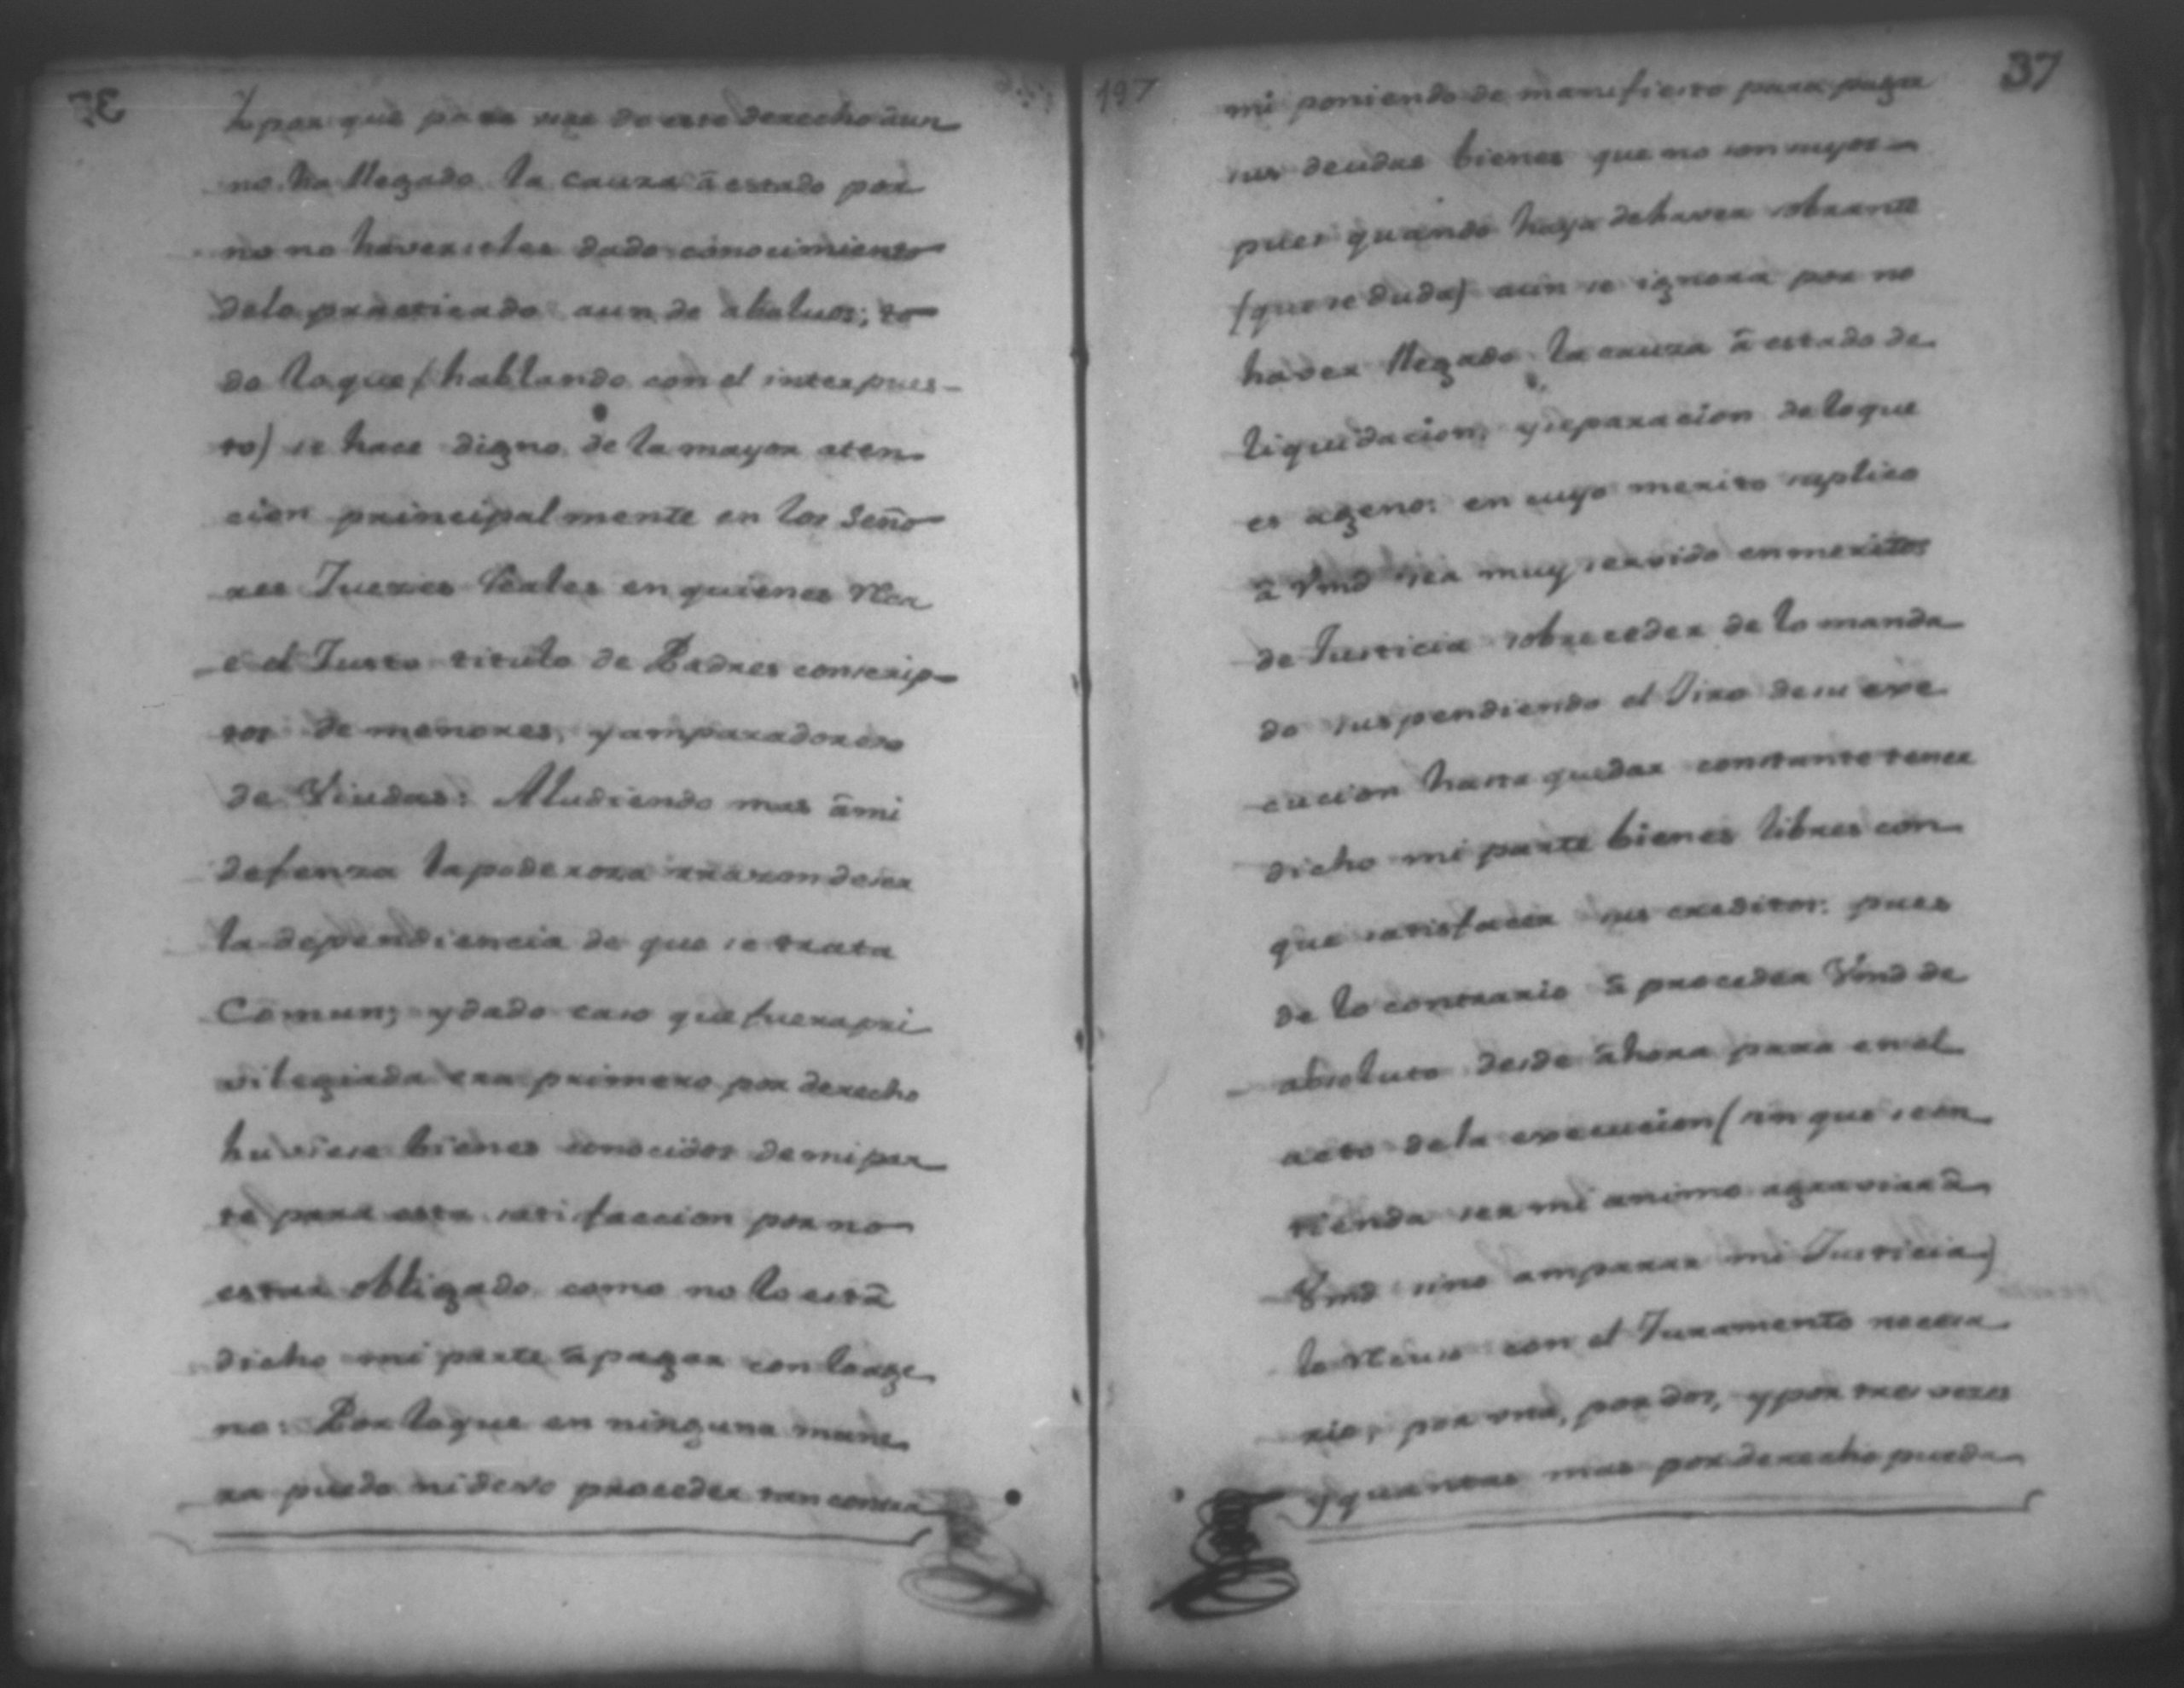 y por que para use de este derecho aun
no ha llegado la causa â estado por
no no haverseles dado conocimiento
delo practicado aun de abaluos; to
do loque (hablando con el interpues-
to) se hace digno de la mayor aten
cion principalmente en los Seño
res Juezes Reales en quienes
el Justo titulo de Padres conscrip
tos de menores, y amparadores
de Viudas: Aludiendo mas âmi
defenza lapoderosa rrazon deser
la dependiencia de que se trata
Comun; ydado caso que fuera pri
vilegiada era primero por derecho
huviese bienes conocidos demipar
te para esta satisfaccion por no
estar obligado como no lo está
dicho mi parte âpagar con loage
no: Porloque en ninguna mane
ra puedo nidevo proceder tan contra
197
37
mi poniendo de manifiesto para pagar
sus deudas bienes que no son suyos
pues quando haya dehaver sobrante
(quese duda) aun se ignora por no
haver llegado la causa â estado de
liquidacion, yseparacion deloque
es ageno: en cuyo merito suplico
â Vmd ser muy servido enmeritos
de Justicia sobreceder de lo manda
do suspendiendo el Jiro desu exe
cucion hasta quedar constante tener
dicho mi parte bienes libres con
que satisfacer sus creditos: pues
de lo contrario â proceder Vmd de
absoluto desde âhora para en el
acto dela execucion (sin que sean
tienda ser mi animo agraviar â
Vmd sino amparar mi Justicia)
lo con el Juramento necesa
rio, por una, por dos, y por tres vezes
y quantas mas por derecho pueda